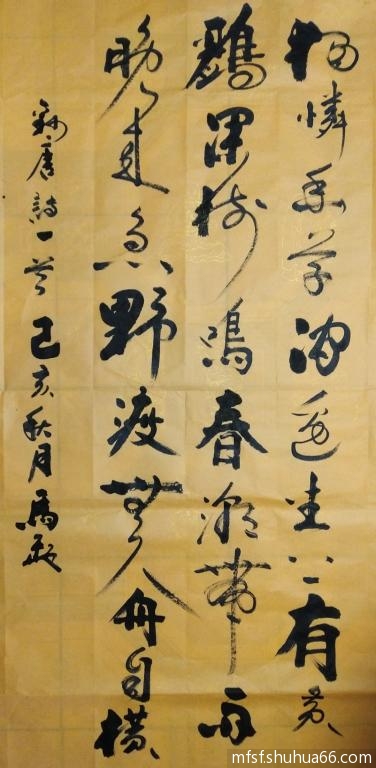 独憐幽草涧邊生上有黄
鸝深樹鳴春潮帶雨
晚来急野渡無人舟自横
錄唐詩一首己亥秋月馬
mfsfshuhua66.com